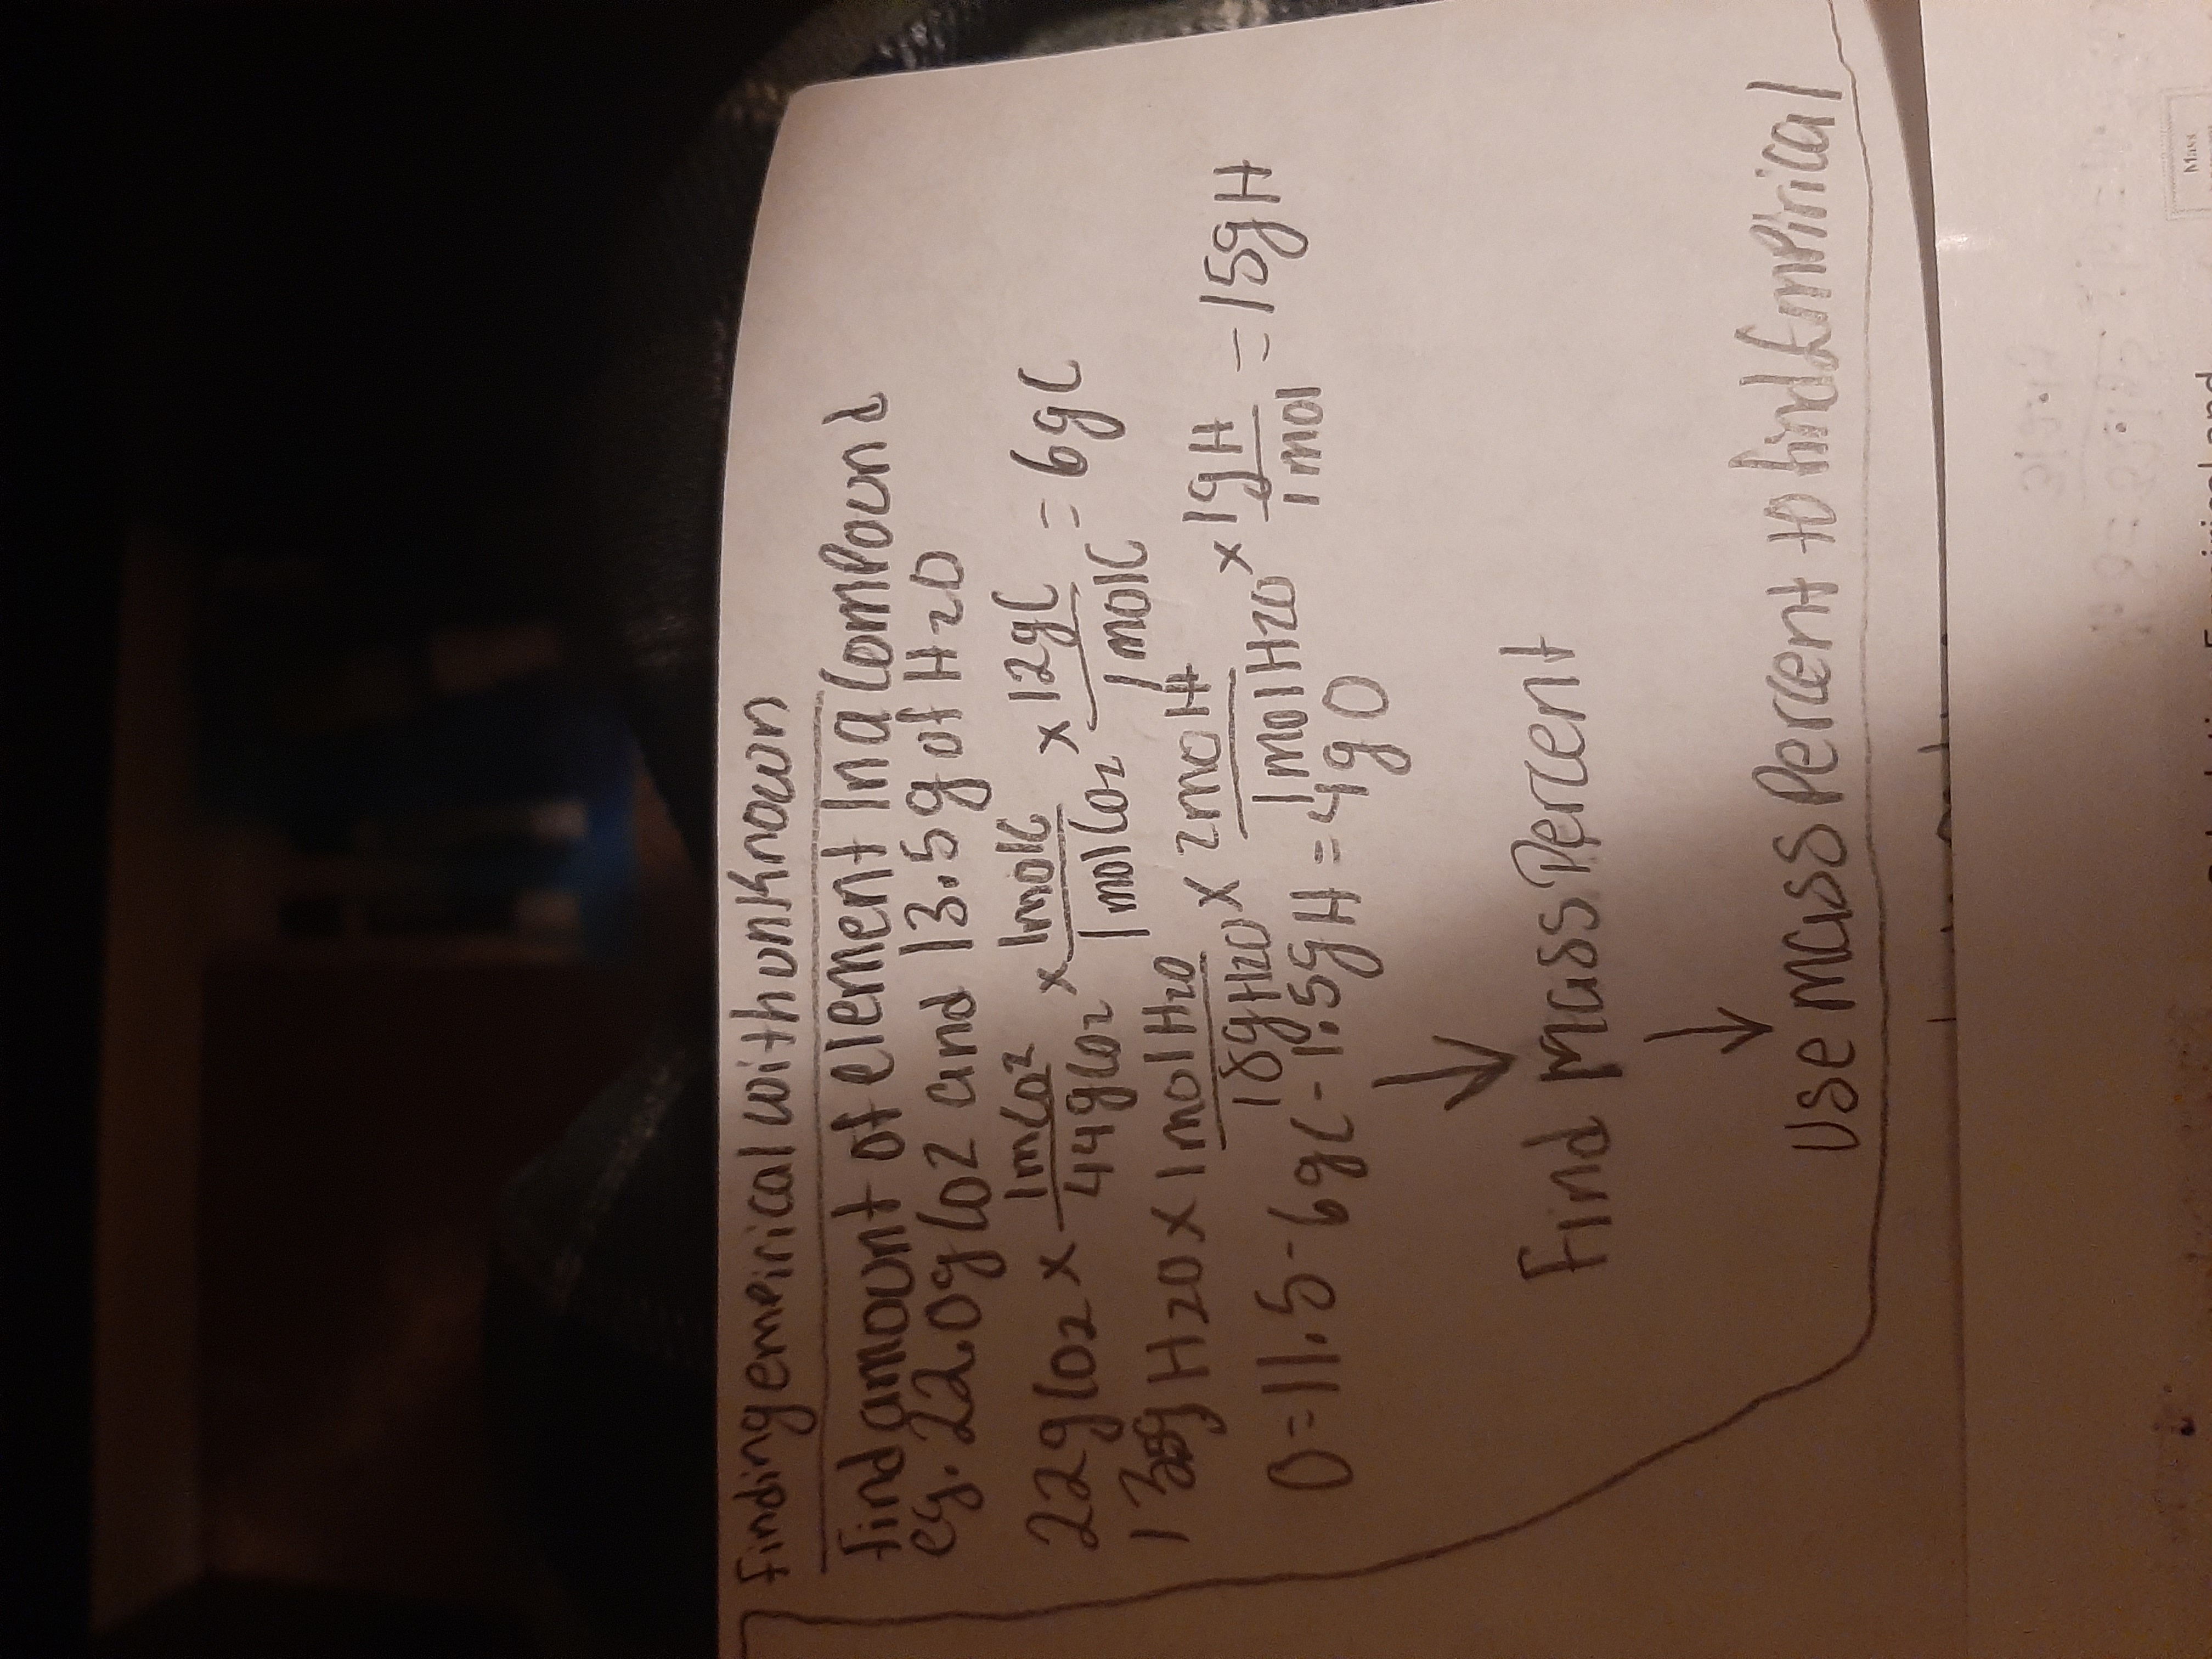 Finding empirical with unknown
Find amount of element in a compound
eg. 22.0g CO2 and 13.5g of H2O
22g CO2 x 1mCO2/44gCO2 x 1molC/1molCO2 x 12gC/1molC = 6gC
13.5g H2O x 1molH2O/18gH2O x 2molH/1molH2O x 1gH/1mol = 15gH
O = 11.5 - 6gC - 1.5gH = 4gO
↓
Find Mass Percent
↓
Use mass Percent to find Empirical
Mass